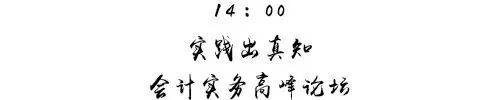 14：00
实践出真知
会计实务高峰论坛